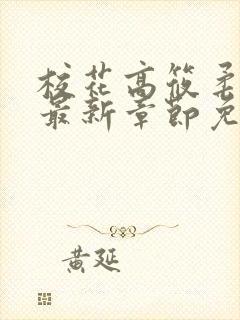 校花高筱柔
最新章節免
黃延